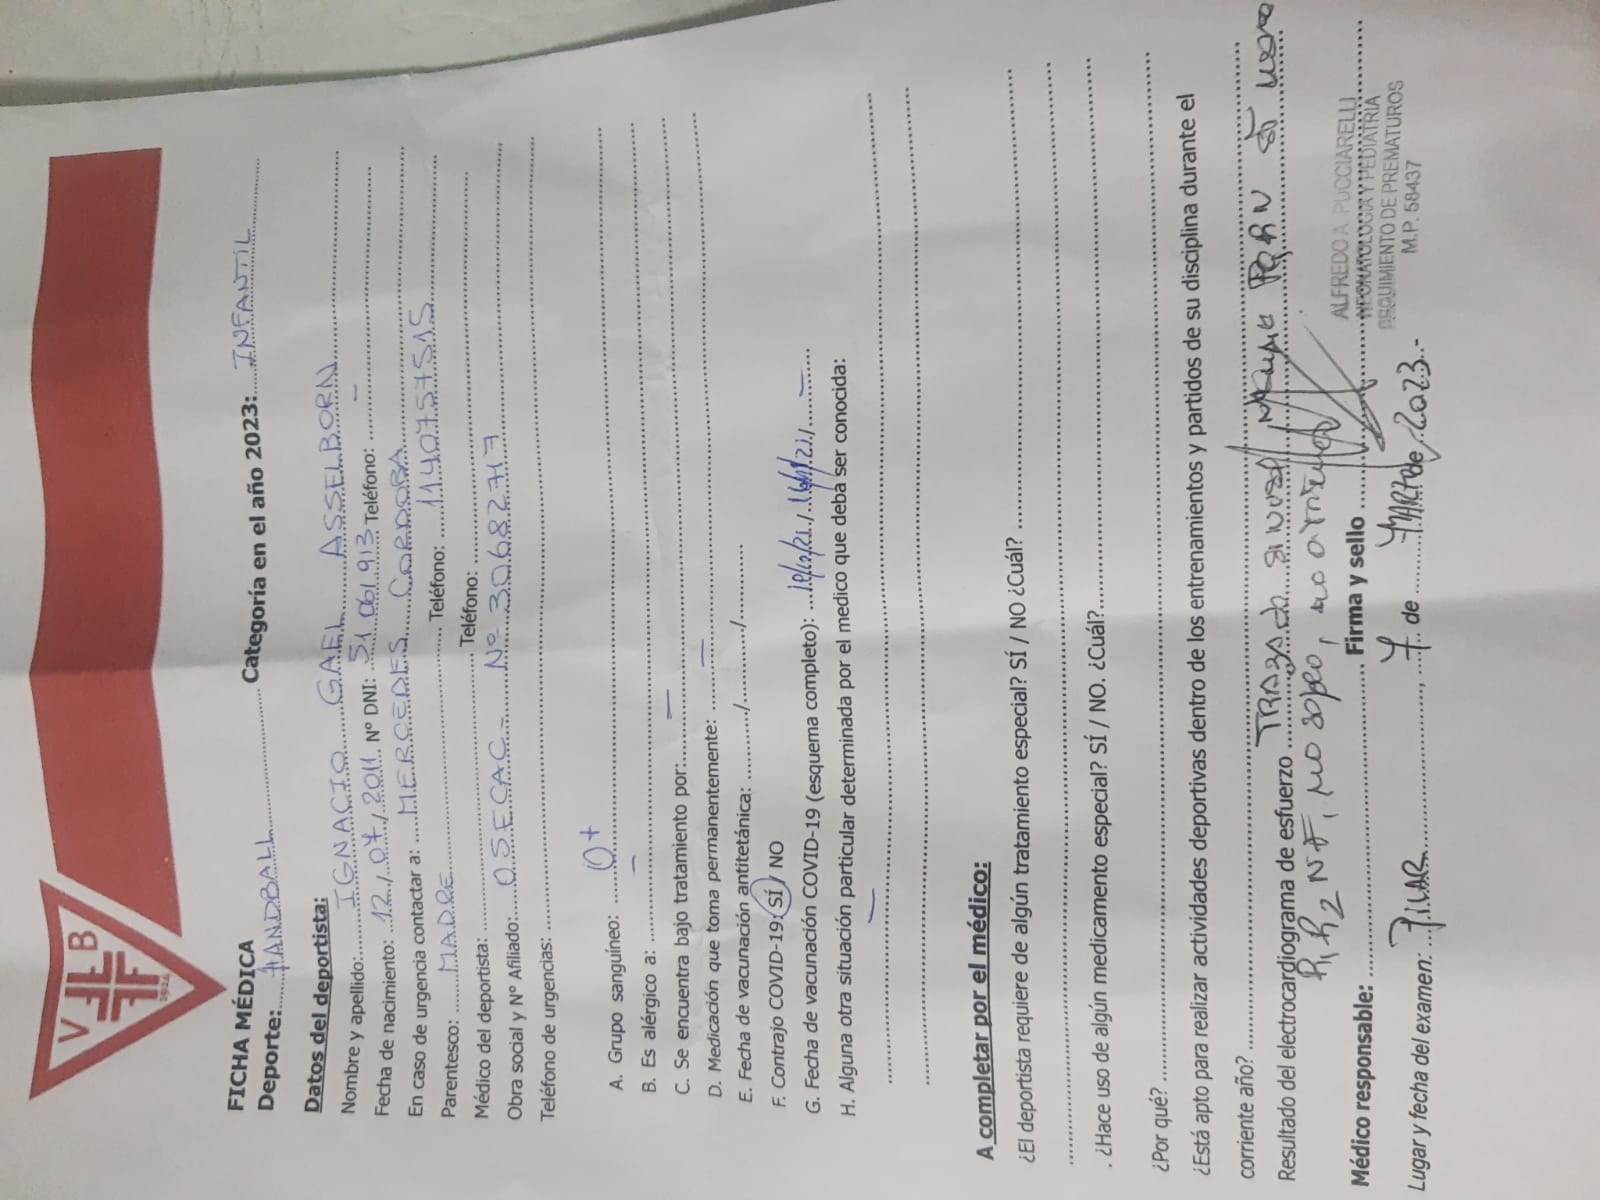 V B
1924
FICHA MÉDICA
Deporte: HANDBALL Categoría en el año 2023: INFANTIL
Datos del deportista:
Nombre y apellido: IGNACIO GAEL ASSELBORN
Fecha de nacimiento: 12/07/2011 Nº DNI: 51.061.913 Teléfono: —
En caso de urgencia contactar a: MERCEDES CORDOBA
Parentesco: MADRE Teléfono: 1140757515
Médico del deportista: Teléfono:
Obra social y Nº Afiliado: OSECAC - Nº 30682747
Teléfono de urgencias:
A. Grupo sanguíneo: O+
B. Es alérgico a: —
C. Se encuentra bajo tratamiento por: —
D. Medicación que toma permanentemente: —
E. Fecha de vacunación antitetánica: / /
F. Contrajo COVID-19: SÍ / NO
G. Fecha de vacunación COVID-19 (esquema completo): / / —
H. Alguna otra situación particular determinada por el medico que deba ser conocida:
—
A completar por el médico:
¿El deportista requiere de algún tratamiento especial? SÍ / NO ¿Cuál?
. ¿Hace uso de algún medicamento especial? SÍ / NO. ¿Cuál?
¿Por qué?
¿Está apto para realizar actividades deportivas dentro de los entrenamientos y partidos de su disciplina durante el
corriente año?
Resultado del electrocardiograma de esfuerzo TRAZADO SINUSAL
R1 R2 NF, NO SOPLO, NO
Médico responsable: Firma y sello
ALFREDO A. PUCCIARELLI
NEONATOLOGIA Y PEDIATRIA
SEGUIMIENTO DE PREMATUROS
M.P. 58437
Lugar y fecha del examen: PILAR, 7 de MARZO de 2023.-